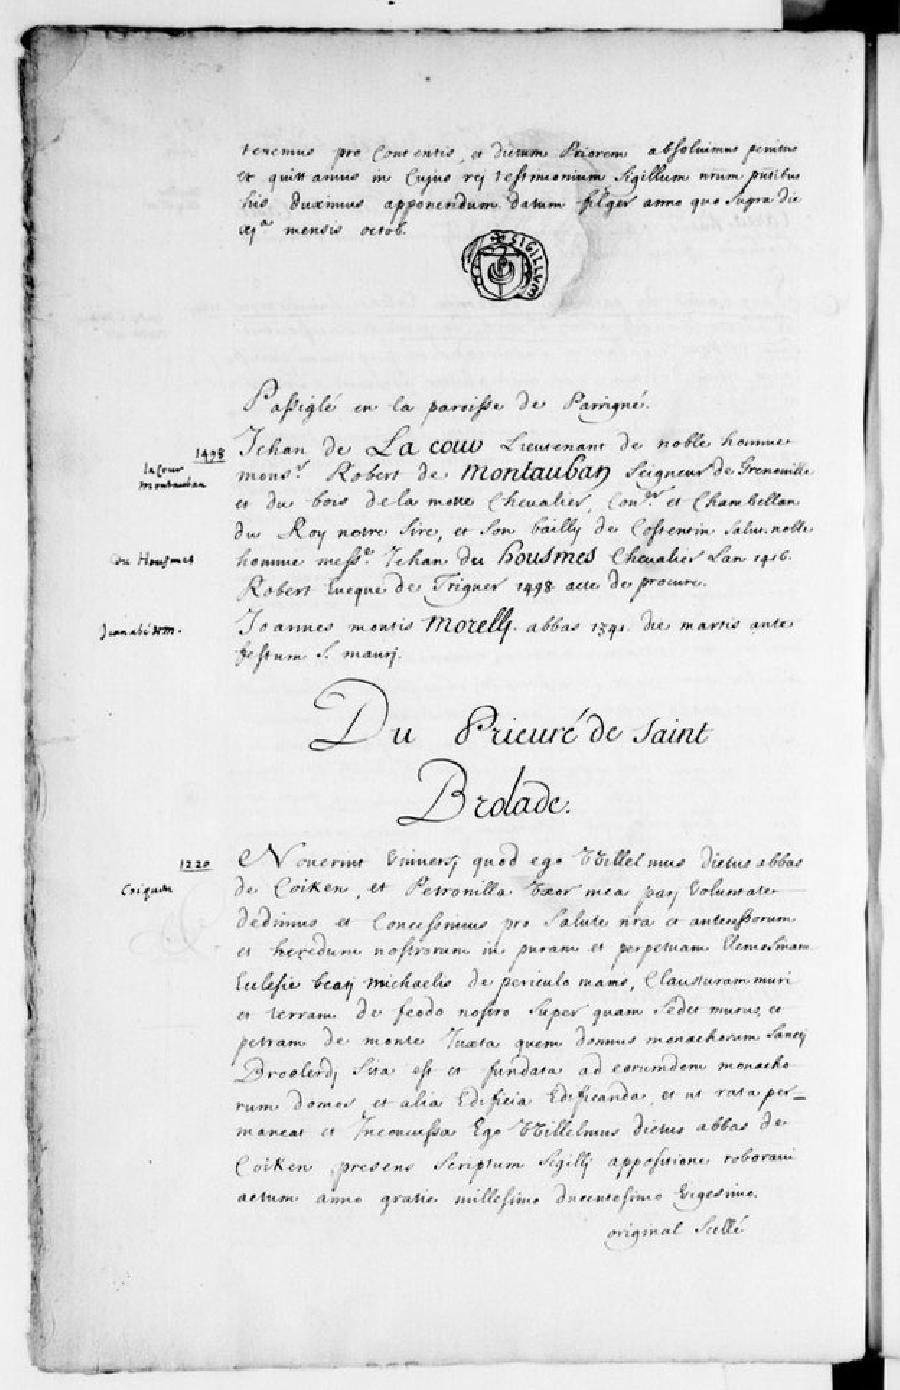 tenemus pro Contentis, et dictum Priorem absoluimus penitus
et quittamus in Cujus rej testimonium Sigillum nrum pntibus
his duximus apponendum datum filger anno quo Supra die
xja mensis octob.
SIGILLUM
Passiglé en la paroisse de Parrigné.
1498
Jehan de La cour Lieutenant de noble homme
la cour
montauban
monsr. Robert de montauban Seigneur de Grenouille
et du bois de la motte Chevalier, Conser et Chambellan
du Roy notre Sire, et Son bailly de Costentin Salut. noble
du Housmes
homme messre. Jehan du housmes Chevalier Lan 1416.
Robert Eveque de Triguer 1498 acte de procure.
Joannes montis Morelli. abbas 1341. die martis ante
festum S. maurj.
Du Prieuré de Saint
Brolade.
1220
Noverint Universj quod ego Willelmus dictus abbas
Coiquen
de Coiken, et Petronilla Uxor mea parj Voluntate
dedimus et Concessimus pro Salute nra et antecessorum
et heredum nostrorum in puram et perpetuam Elemosinam
Eclesie beatj michaelis de periculo maris, Clausturam muri
et terram de feodo nostro Super quam Sedet murus, et
petram de monte Juxta quem domus monachorum Sanctj
Broelerdj Sita est et fundata ad eorumdem monacho
rum domos, et alia Edificia Edificanda, et ut rata per=
maneat et Inconcussa Ego Willelmus dictus abbas de
Coiken presens Scriptum Sigillj appositione roboravi
actum anno gratie millesimo ducentesimo Vigesimo.
original Scellé